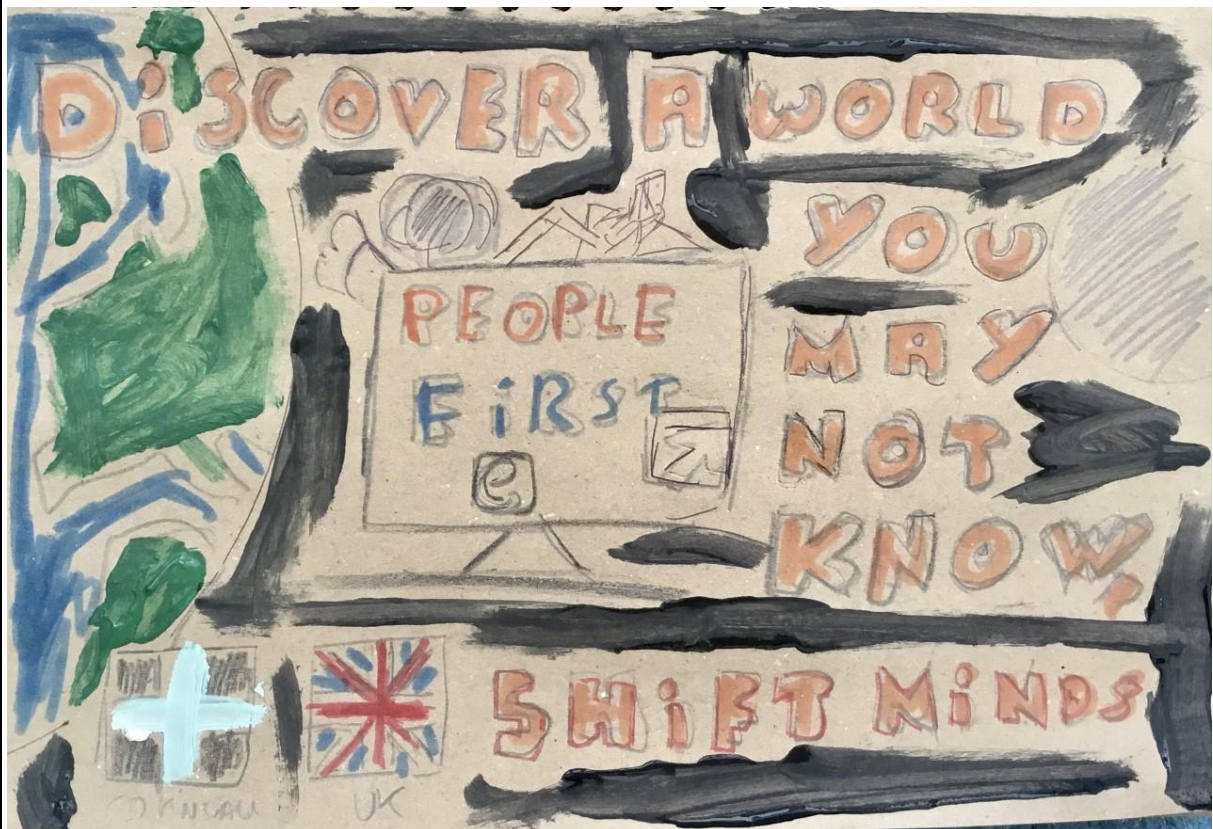 DiSCOVER A WORLD
YOU
MAY
NOT
KNOW,
PEOPLE
FiRST
e
SHiFT MiNDS
UK